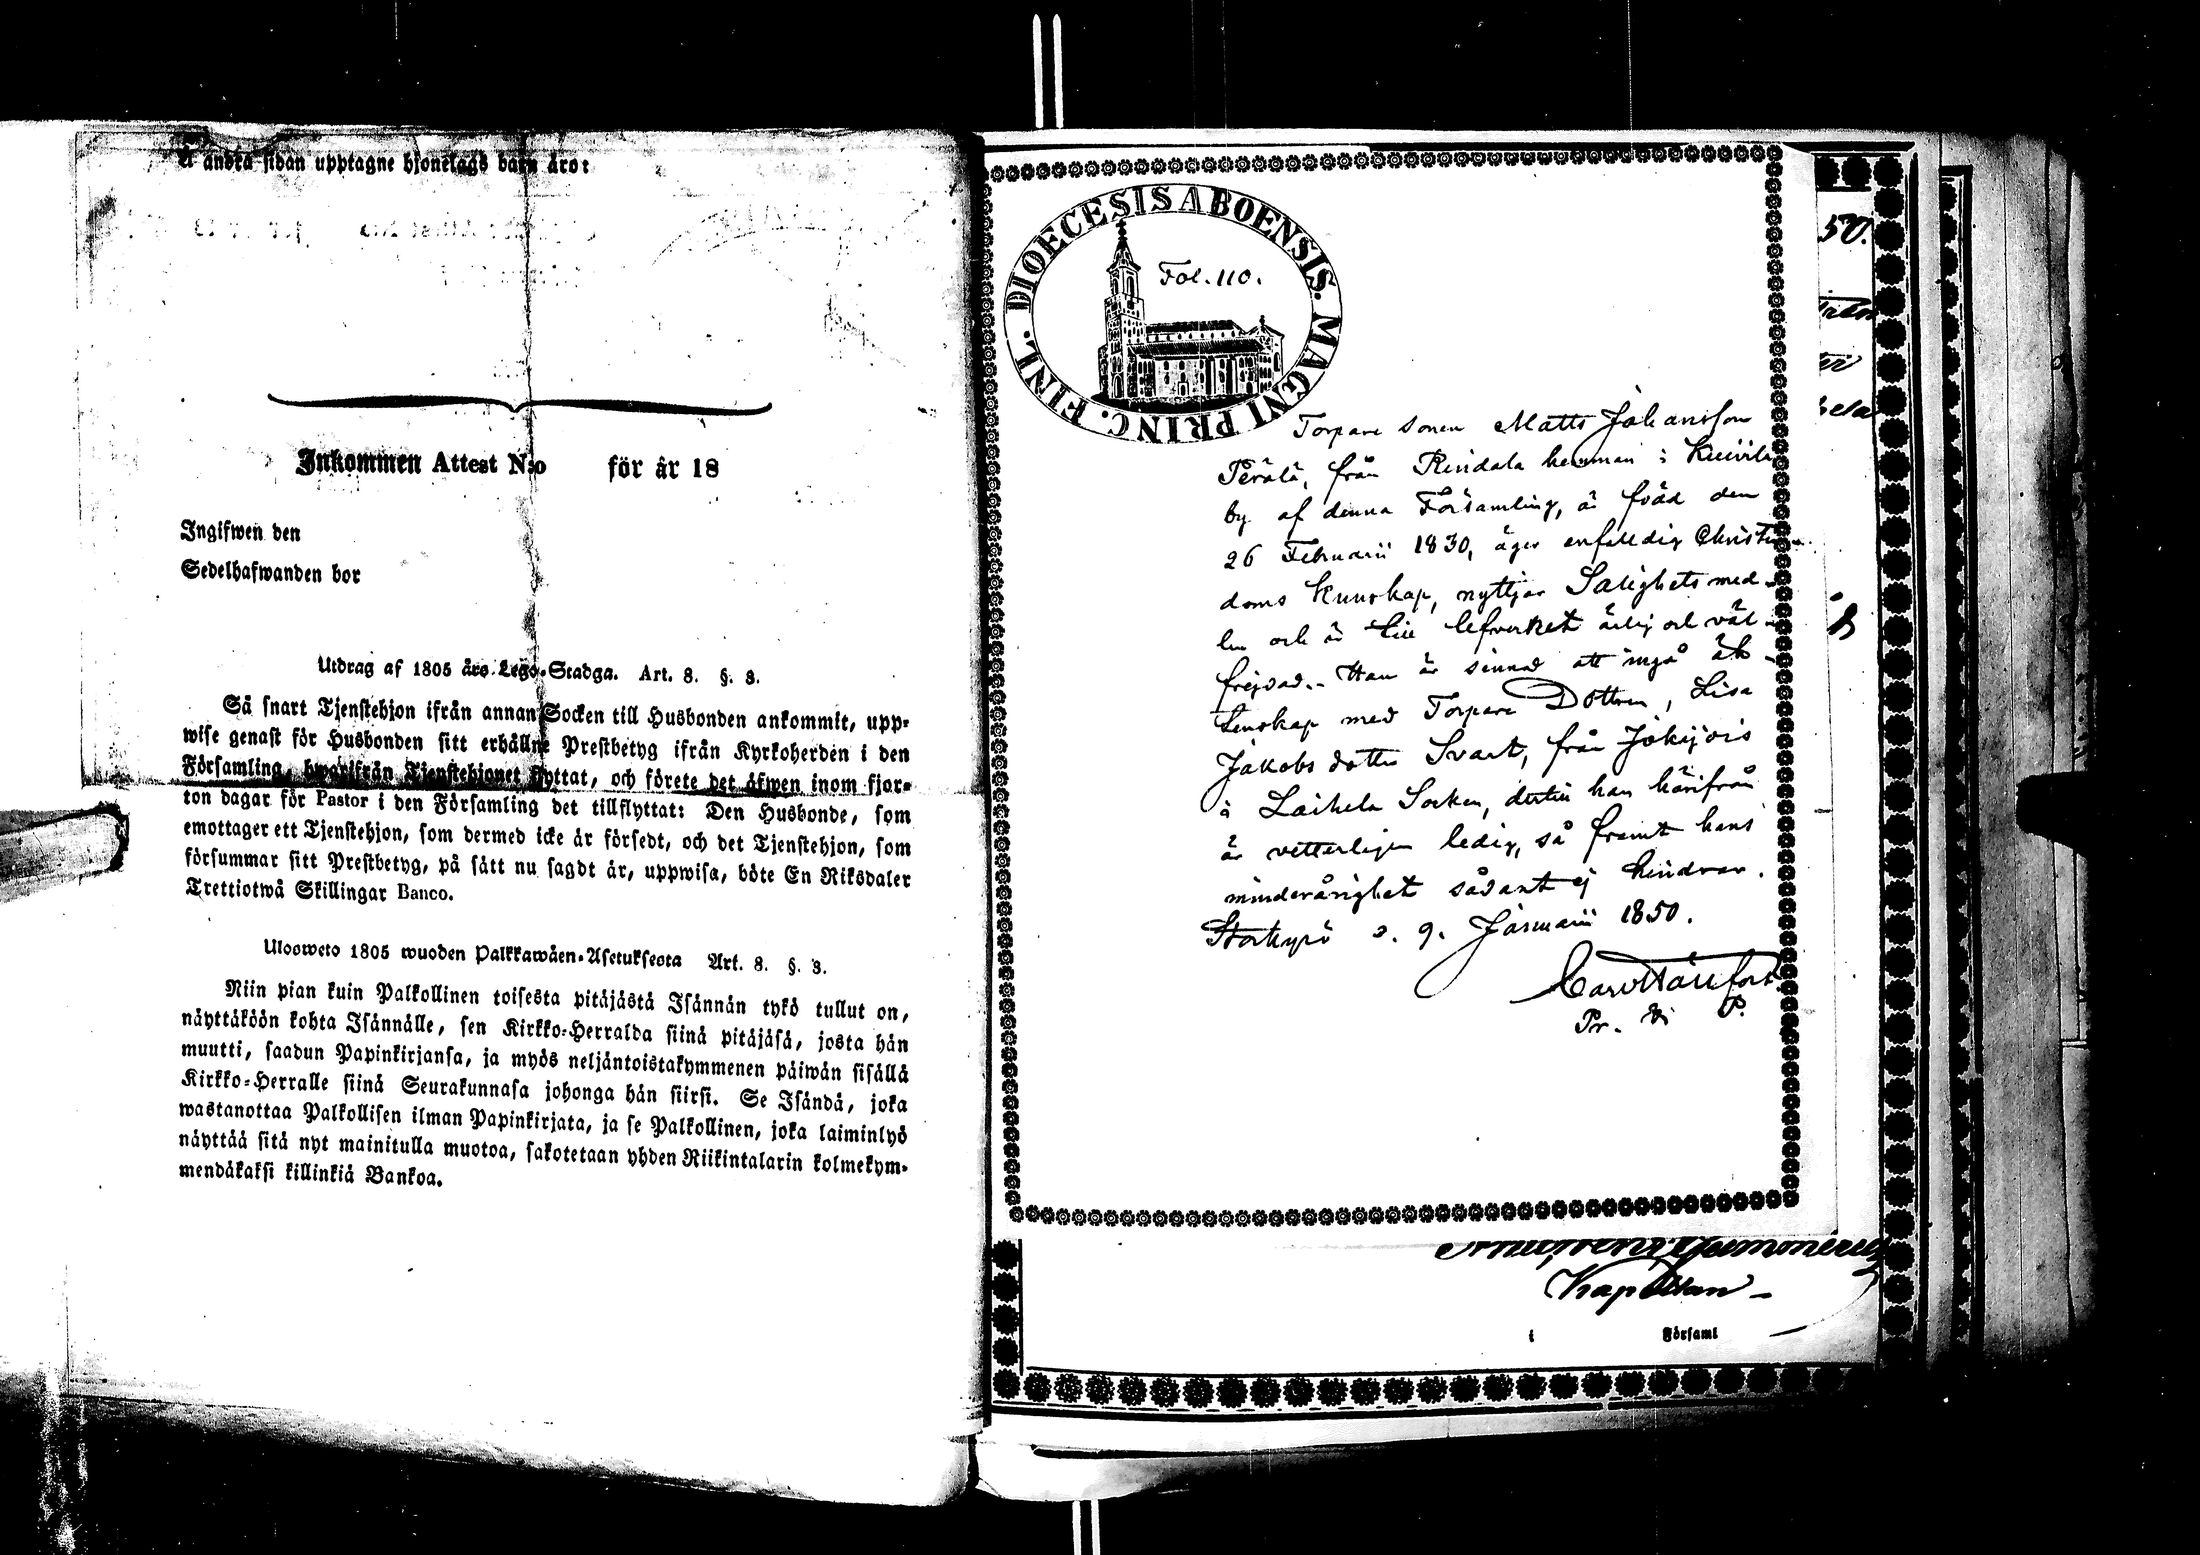 Å andra sidan upptagne hjonelags barn äro:
Inkommen Attest N:o för år 18
Ingifwen den
Sedelhafwanden bor
Utdrag af 1805 års Lego-Stadga. Art. 8. §. 3.
Så snart Tjenstehjon ifrån annan Socken till Husbonden ankommit, upp-
wise genast för Husbonden sitt erhållne Prestbetyg ifrån Kyrkoherden i den
Församling, hwarifrån Tjenstehjonet flyttat, och förete det äfwen inom fjor-
ton dagar för Pastor i den Församling det tillflyttat: Den Husbonde, som
emottager ett Tjenstehjon, som dermed icke är försedt, och det Tjenstehjon, som
försummar sitt Prestbetyg, på sätt nu sagdt är, uppwisa, böte En Riksdaler
Trettiotwå Skillingar Banco.
Ulosweto 1805 wuoden Palkkawäen-Asetuksesta Art. 8. §. 3.
Niin pian kuin Palkollinen toisesta pitäjästä Isännän tykö tullut on,
näyttäköön kohta Isännälle, sen Kirkko-Herralda siinä pitäjäsä, josta hän
muutti, saadun Papinkirjansa, ja myös neljäntoistakymmenen päiwän sisällä
Kirkko-Herralle siinä Seurakunnasa johonga hän siirsi. Se Isändä, joka
wastanottaa Palkollisen ilman Papinkirjata, ja se Palkollinen, joka laiminlyö
näyttää sitä nyt mainitulla muotoa, sakotetaan yhden Riikintalarin kolmekym-
mendäkaksi killinkiä Bankoa.
DIOECESIS ABOENSIS. MAGNI PRINC. FINL.
Fol. 110.
Torpare sonen Matts Johansson
Perälä, från Rindala hemman i Kuivila
by af denna Församling, är född den
26 Februarii 1830, äger enfalldig Christen-
doms kunskap, nyttjar Salighets med-
len och är till lefvernet ärlig och väl-
frejdad.- Han är sinnad att ingå äk-
tenskap med Torpare Dottren, Lisa
Jakobs dotter Svart, från Jokipois
i Laihela Socken, dertill han härifrån
är vetterligen ledig, så framt hans
minderårighet sådant ej hindrar.
Storkyrö d. 9. Januarii 1850.
Pr. Vi P.
50.
Kapellan
i Församl